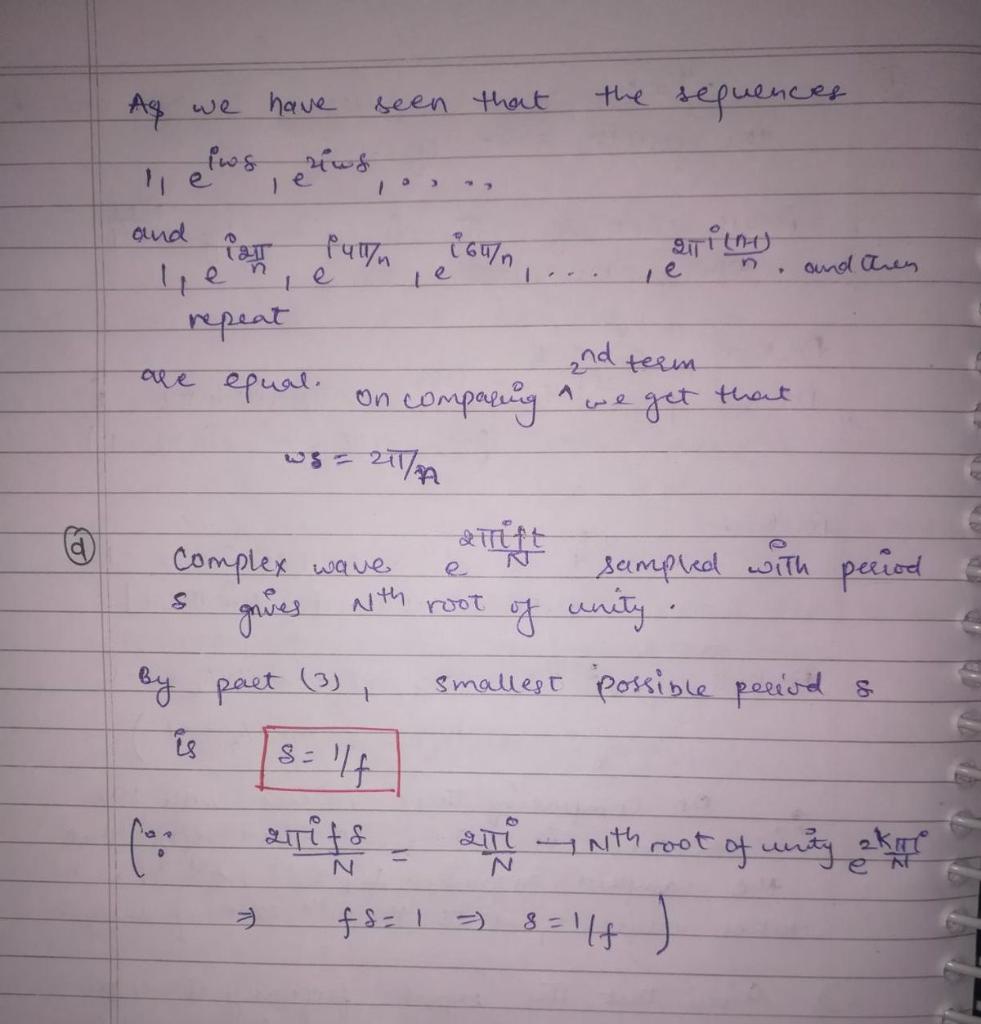 As we have seen that the sequences
1, e^{iωs}, e^{2iωs}, .....
and
1, e^{i2π/n}, e^{i4π/n}, e^{i6π/n}, ...., e^{2πi(n-1)/n}. and then
repeat
are equal. On comparing ^ 2nd term we get that
ωs = 2π/n
(d) Complex wave e^{2πift/N} sampled with period
s gives Nth root of unity.
By part (3), smallest possible period s
is s = 1/f
(∵ 2πifs/N = 2πi/N → Nth root of unity e^{2kπi/N}
⇒ fs = 1 ⇒ s = 1/f )